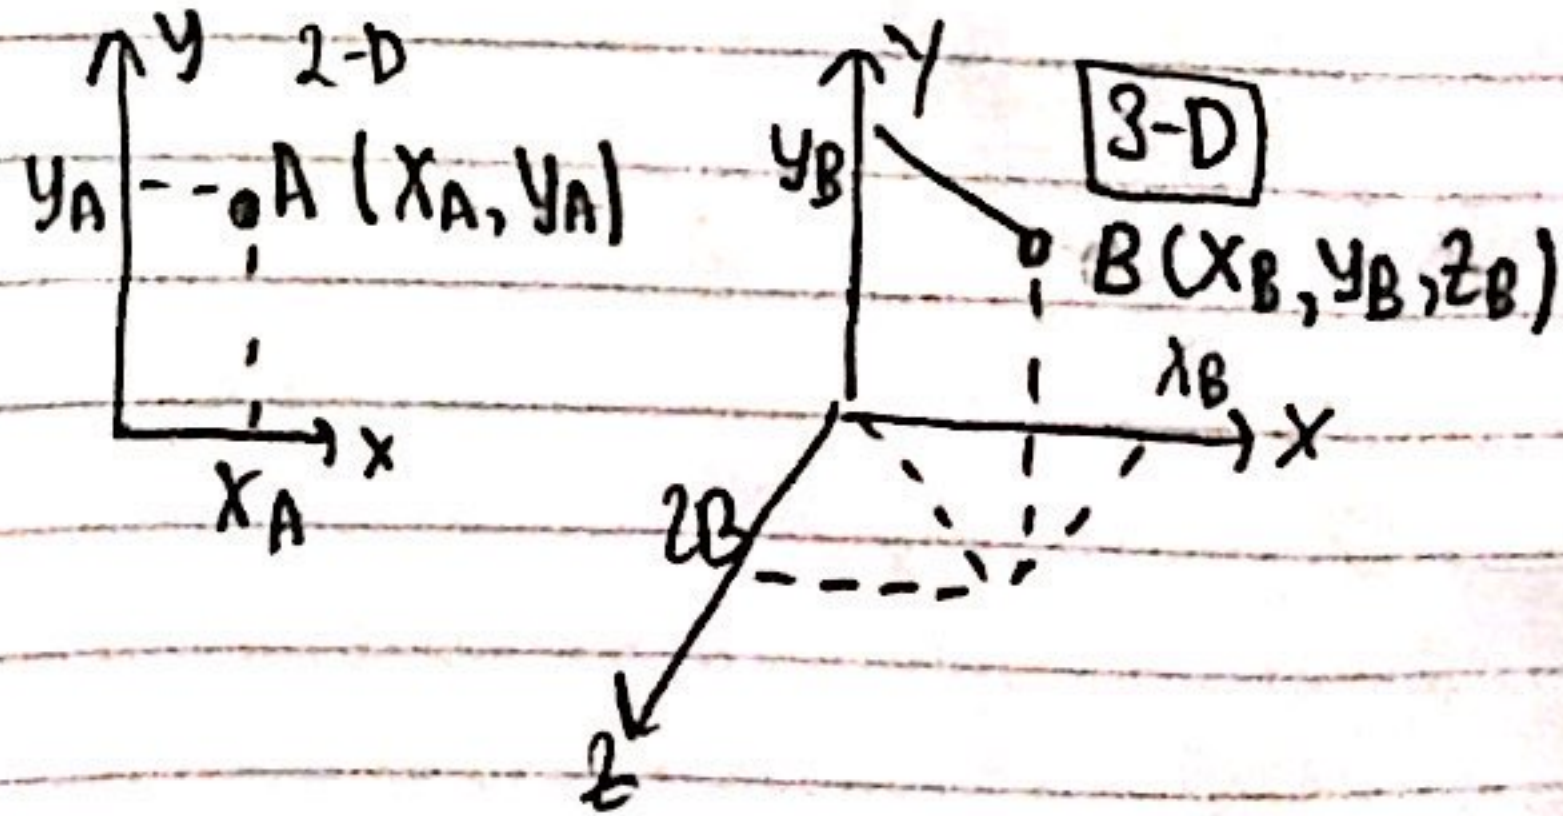 y 2-D
yA A (XA, yA)
x
XA
Y
3-D
yB
B (XB, yB, ZB)
XB
X
ZB
Z